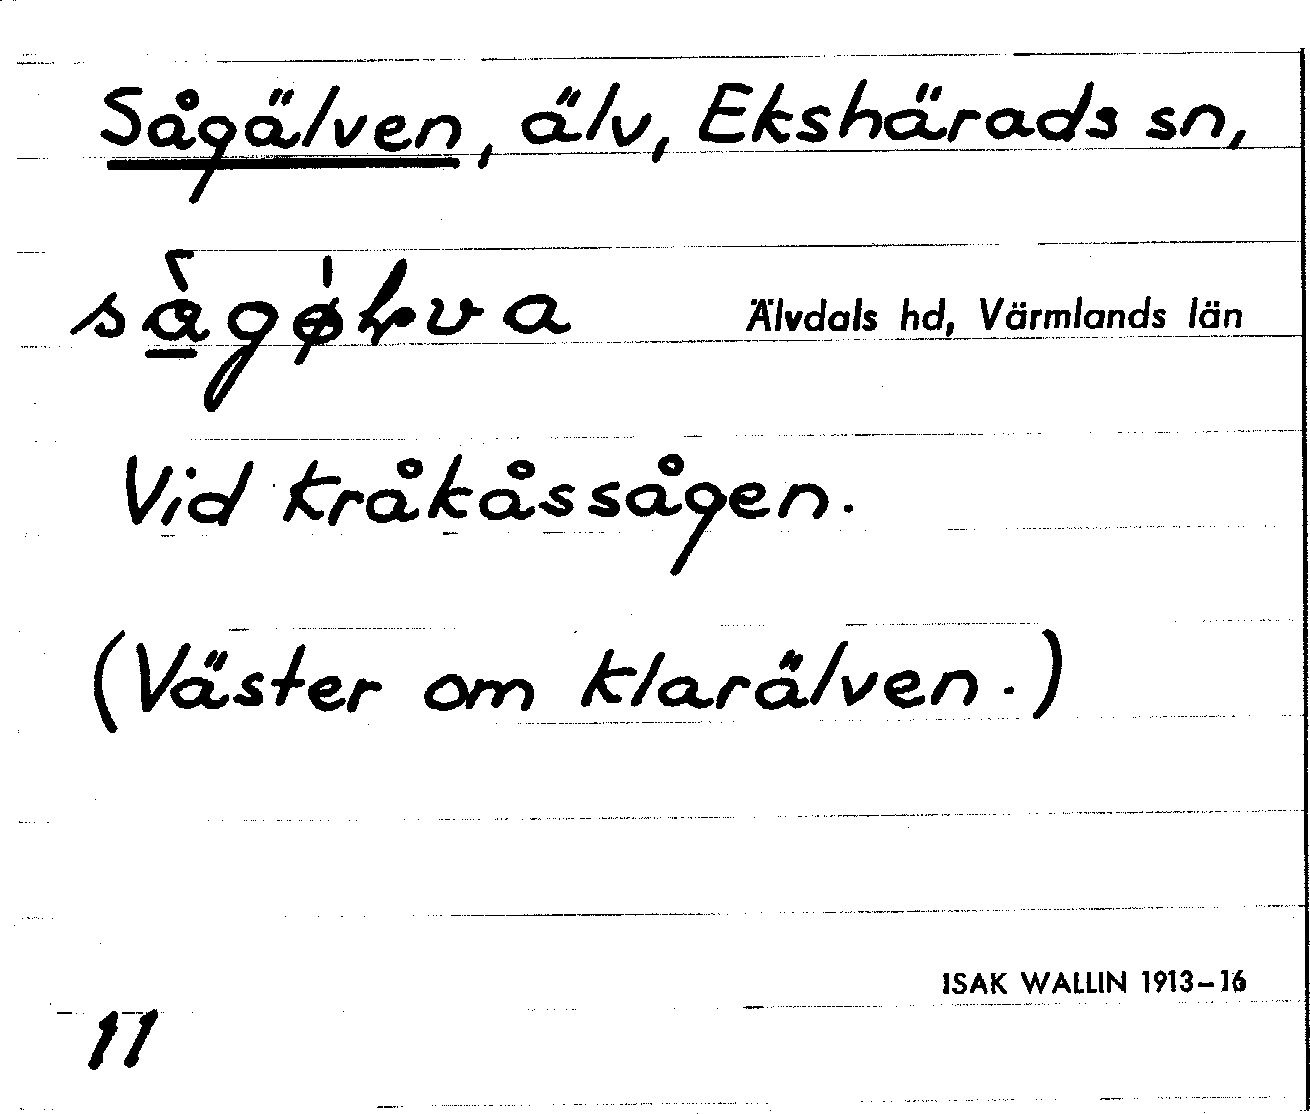 Sågälven, älv, Ekshärads sn,
Älvdals hd, Värmlands län
Vid Kråkåssågen.
(Väster om Klarälven.)
ISAK WALLIN 1913–16
11